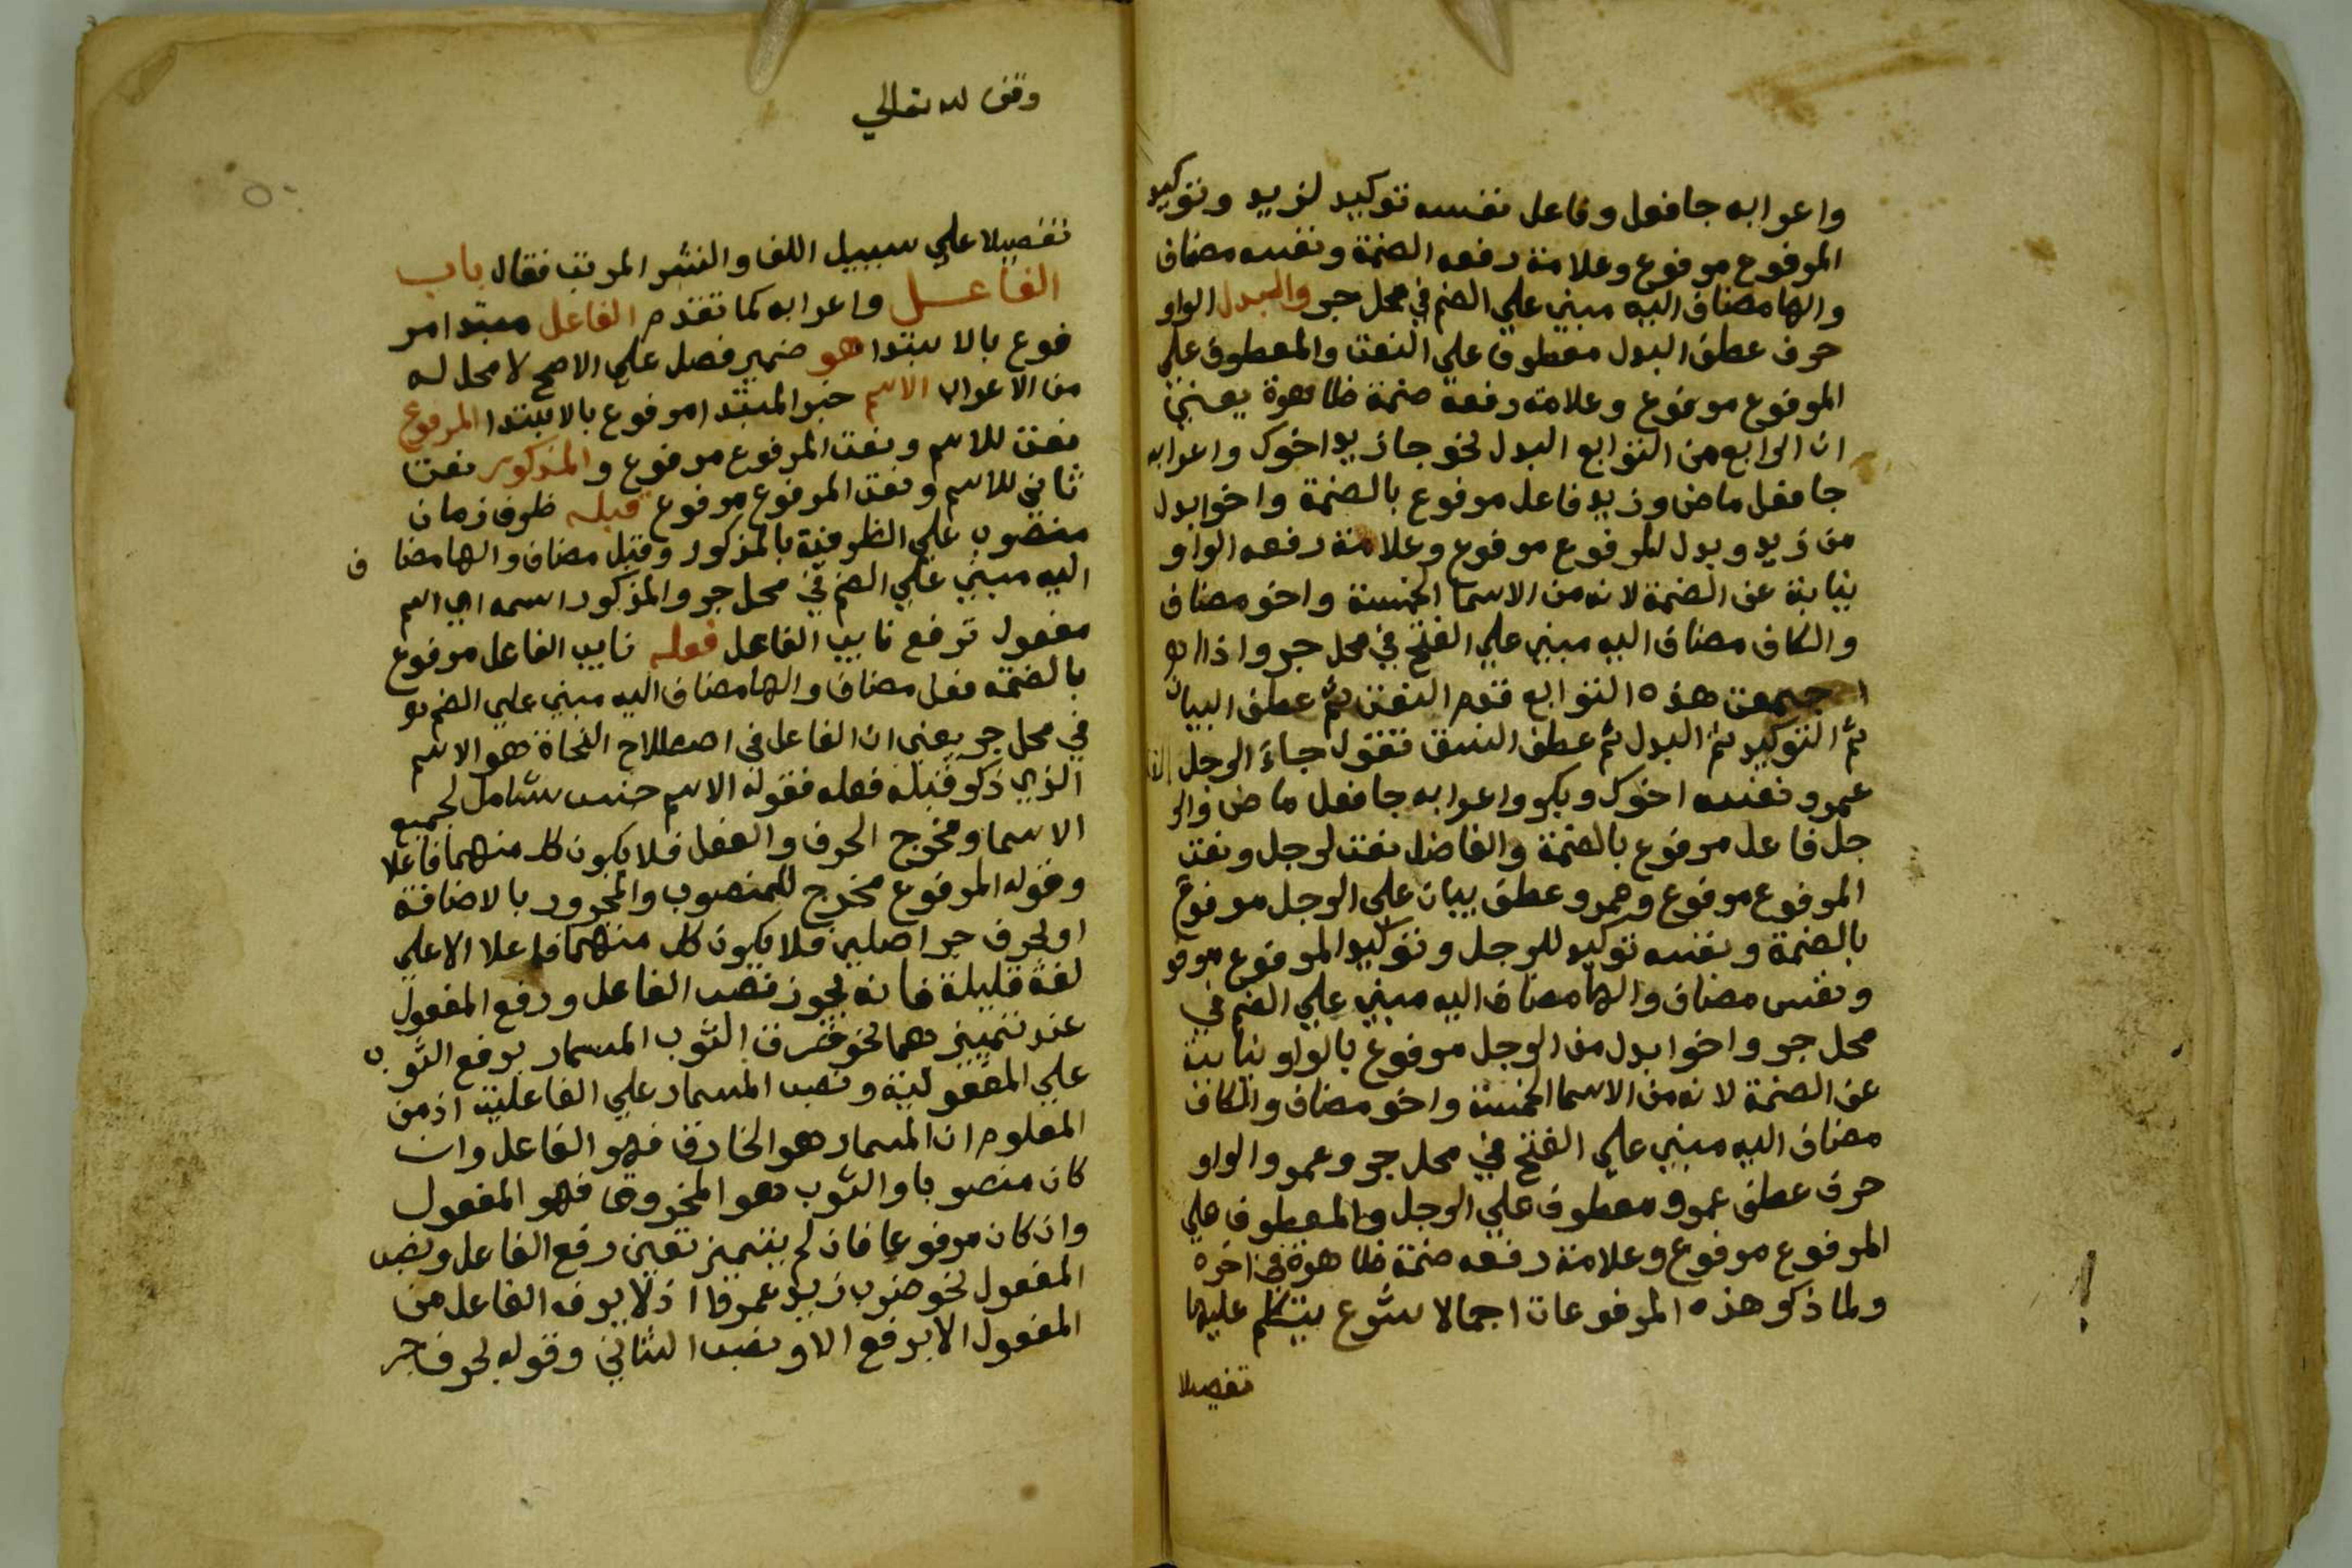 واعرابه جا فعل وفاعل نفسه توكيد لزيد وتوكيد
المرفوع مرفوع وعلامة رفعه الضمة ونفسه مضاف
والها مضاف اليه مبني علي الضم في محل جر والبدل الواو
حرف عطف البدل معطوف علي النعت والمعطوف علي
المرفوع مرفوع وعلامة رفعه ضمة ظاهرة يعني
ان الرابع من التوابع البدل نحو جا زيد اخوك واعرابه
جا فعل ماض وزيد فاعل مرفوع بالضمة واخوا بدل
من زيد وبدل المرفوع مرفوع وعلامة رفعه الواو
نيابة عن الضمة لانه من الاسما الخمسة واخو مضاف
والكاف مضاف اليه مبني علي الفتح في محل جر واذا
اجتمعت هذه التوابع قدم النعت ثم عطف البيان
ثم التوكيد ثم البدل ثم عطف النسق فتقول جاء الرجل
عمرو نفسه اخوك وبكر واعرابه جا فعل ماض والر
جل فاعل مرفوع بالضمة والفاضل نعت لرجل ونعت
المرفوع مرفوع وعمرو عطف بيان علي الرجل مرفوع
بالضمة ونفسه توكيد للرجل وتوكيد المرفوع مرفو
ونفس مضاف والها مضاف اليه مبني علي الضم في
محل جر واخوا بدل من الرجل مرفوع بالواو نيابة
عن الضمة لانه من الاسما الخمسة واخو مضاف والكاف
مضاف اليه مبني علي الفتح في محل جر وعمرو الواو
حرف عطف عمرو معطوف علي الرجل والمعطوف علي
المرفوع مرفوع وعلامة رفعه ضمة ظاهرة في اخره
ولما ذكر هذه المرفوعات اجمالا شرع يتكلم عليها
تفصيلا
وقف لله تعالي
٥٠
تفصيلا علي سبيل اللف والنشر المرتب فقال باب
الفاعل واعرابه كما تقدم الفاعل مبتدا مر
فوع بالابتدا هو ضمير فصل علي الاصح لا محل له
من الاعراب الاسم خبر المبتدا مرفوع بالابتدا المرفوع
نعت للاسم ونعت المرفوع مرفوع والمذكور نعت
ثاني للاسم ونعت المرفوع مرفوع قبله ظرف زمان
منصوب علي الظرفية بالمذكور وقبل مضاف والها مضا ف
اليه مبني علي الضم في محل جر والمذكور اسمه اي اسم
مفعول ترفع نايب الفاعل فعله نايب الفاعل مرفوع
بالضمة فعل مضاف والها مضاف اليه مبني علي الضم
في محل جر يعني ان الفاعل في اصطلاح النحاة هو الاسم
الذي ذكر قبله فعله فقوله الاسم جنس شامل لجميع
الاسما ومخرج الحرف والفعل فلا يكون كل منهما فاعلا
وقوله المرفوع مخرج للمنصوب والمجرور بالاضافة
او بحرف جر اصلي فلا يكون كل منهما فاعلا الا علي
لغة قليلة فانه يجوز نصب الفاعل ورفع المفعول
عند تمييزهما نحو خرق الثوب المسمار برفع الثوب
علي المفعولية ونصب المسمار علي الفاعلية اذ من
المعلوم ان المسمار هو الخارق فهو الفاعل وان
كان منصوبا والثوب هو المخروق فهو المفعول
وان كان مرفوعا فان لم يتميز تعين رفع الفاعل ونصب
المفعول نحو ضرب زيد عمرا اذ لا يعرف الفاعل من
المفعول الا برفع الاو ونصب الثاني وقوله بحرف جر